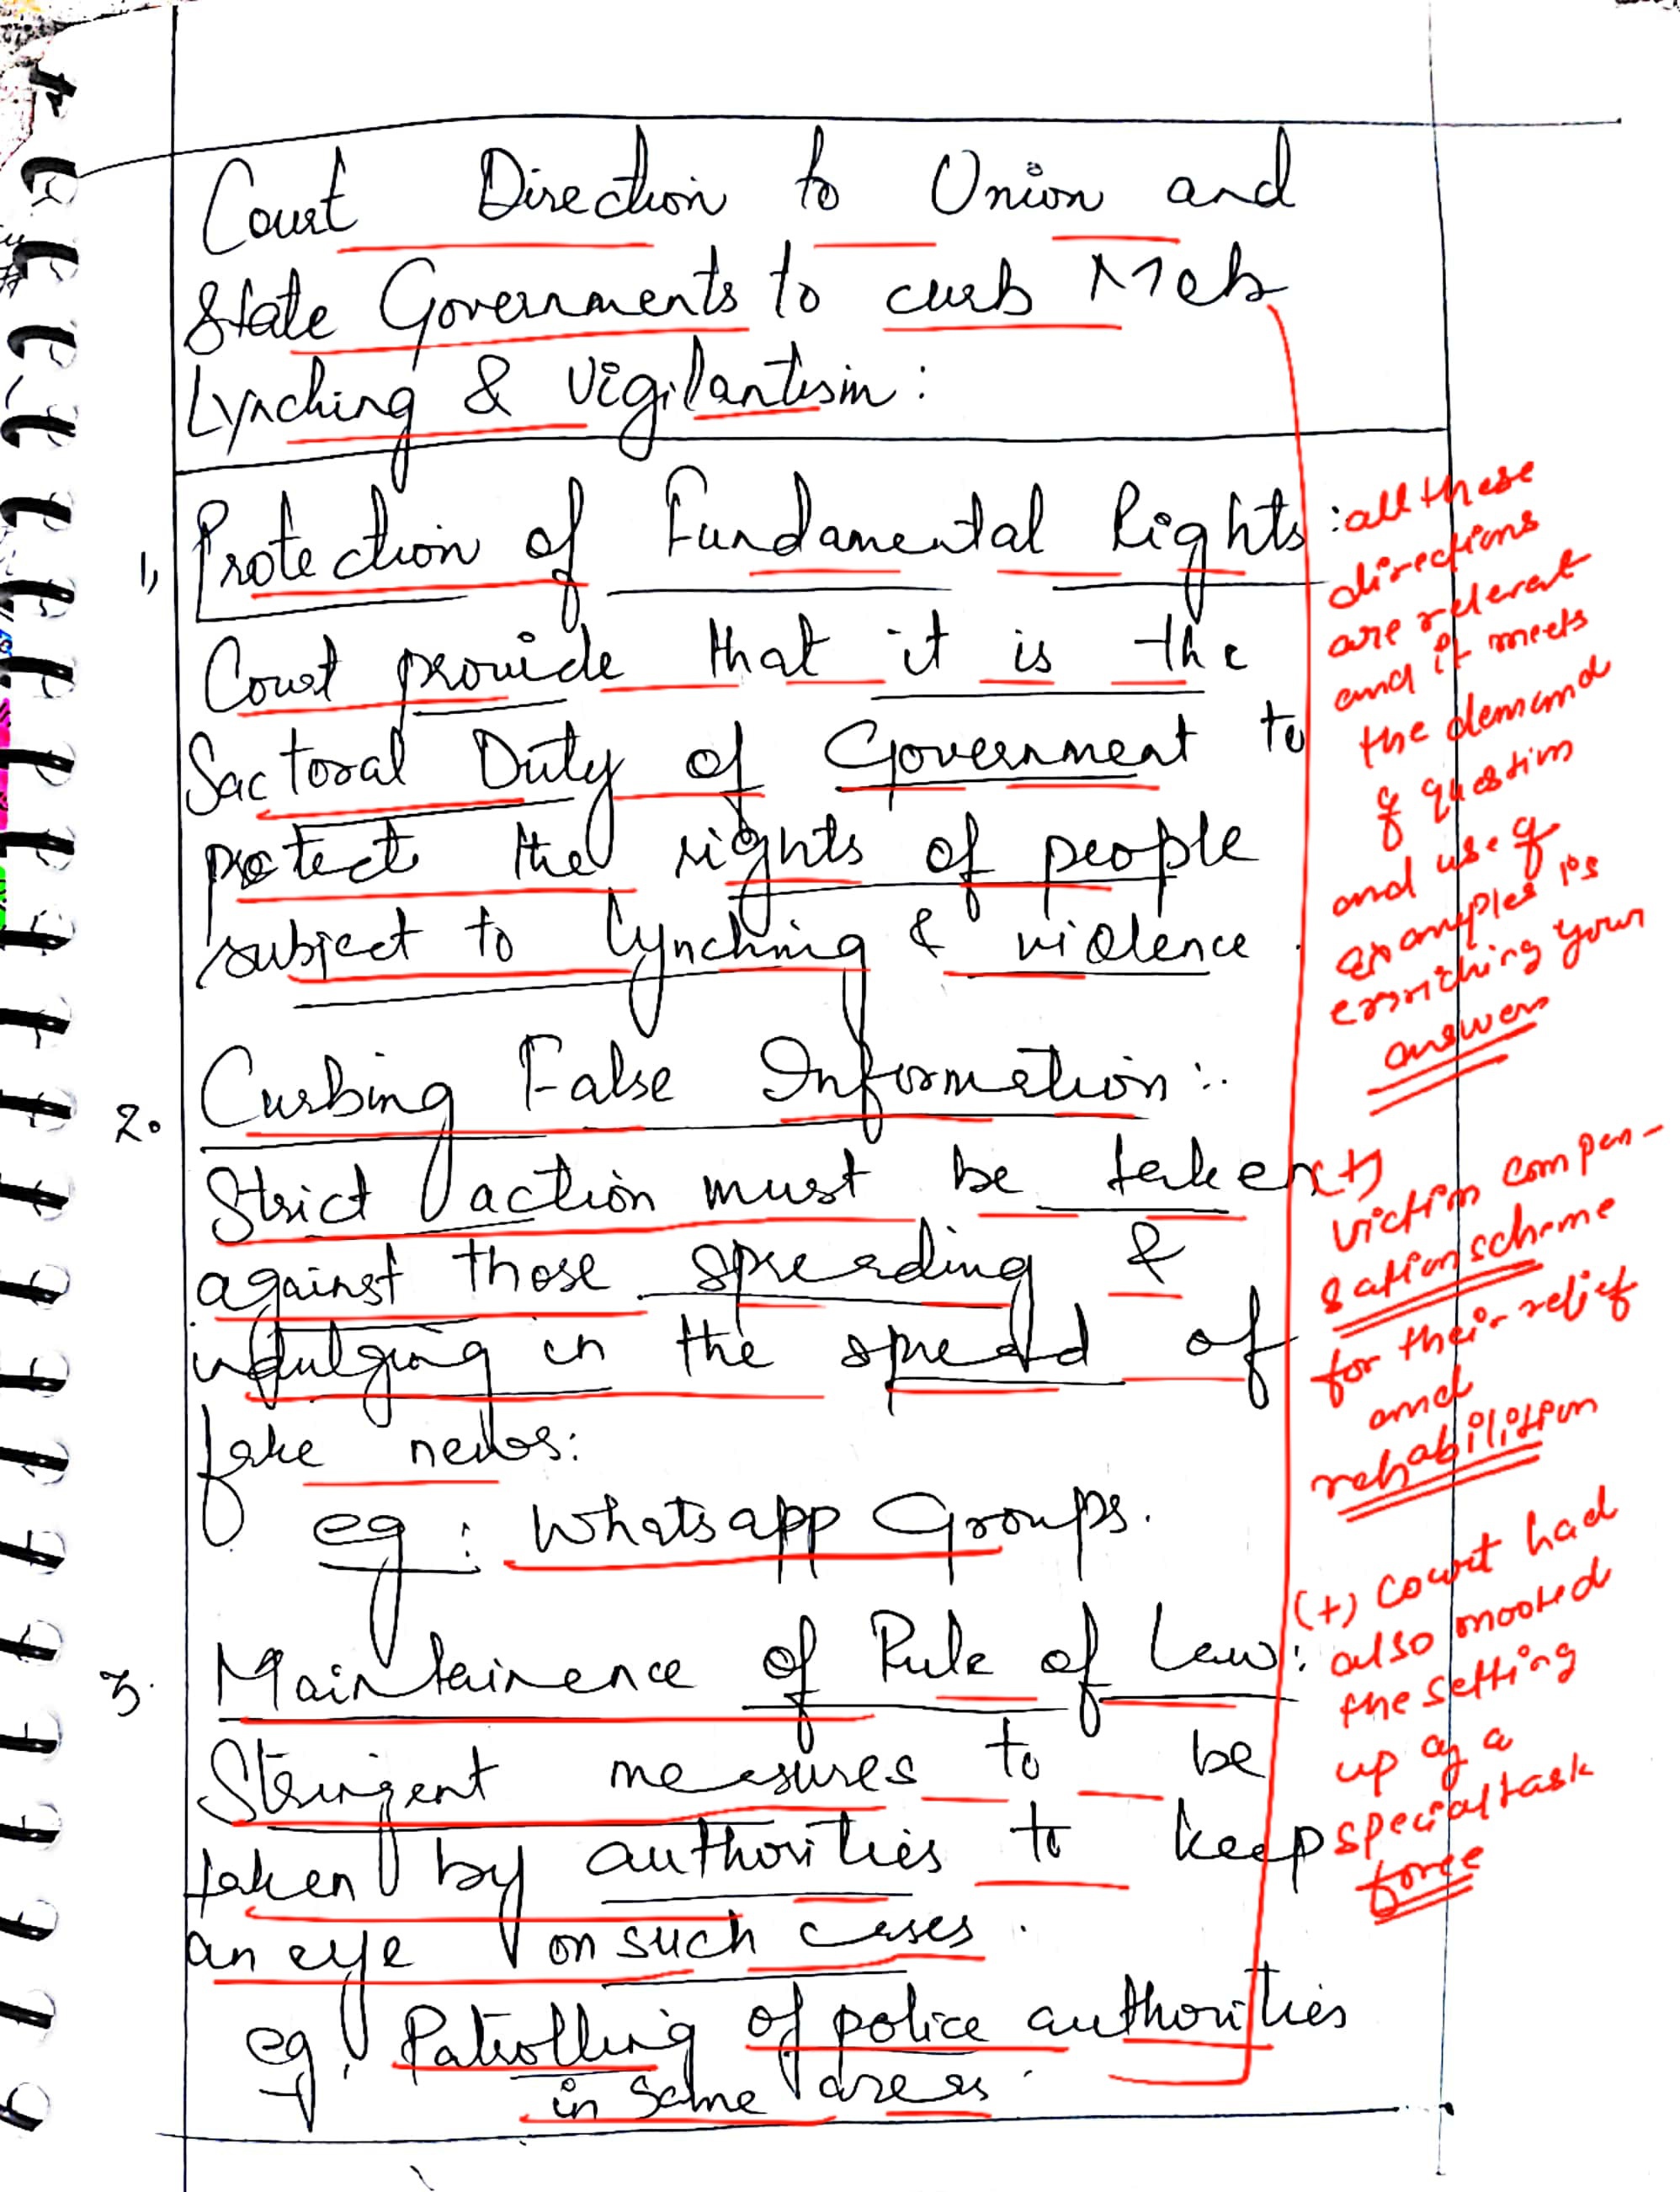 Court Direction to Union and
State Governments to curb Mob
Lynching & Vigilantism:
1, Protection of Fundamental Rights:
Court provide that it is the
Sactoral Duty of Government to
protect the rights of people
subject to lynching & violence.
2. Curbing False Information:
Strict action must be taken
against those spreading &
indulging in the spread of
fake news:
eg: Whatsapp Groups.
3. Maintainence of Rule of Law:
Stringent measures to be
taken by authorities to keep
an eye on such cases.
eg: Patrolling of police authorities
in some areas.
: all these
directions
are relevant
and it meets
the demand
of question
and use of
examples is
enriching your
answer
(+)
victim compen-
sation scheme
for their relief
and
rehabilition
(+) Court had
also mooted
the setting
up of a
special task
force